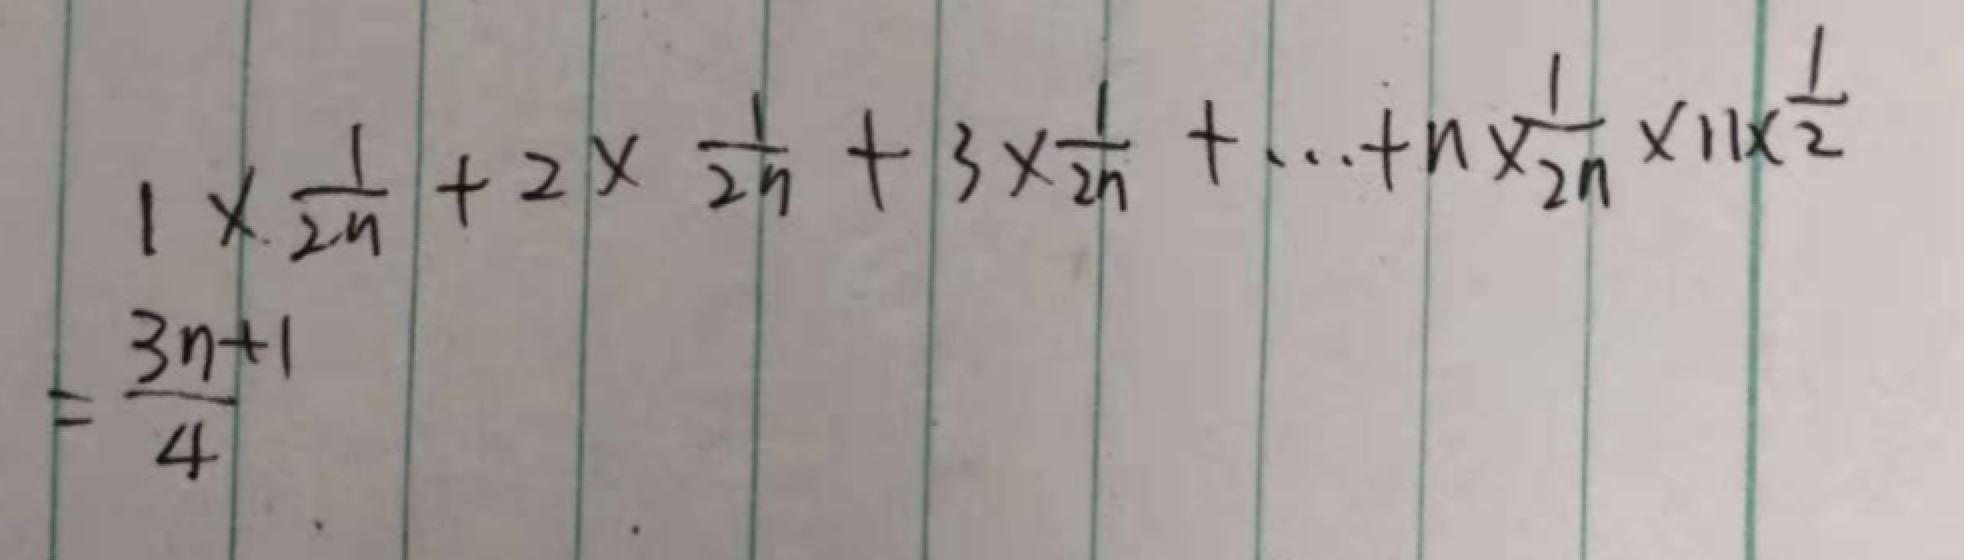 1 × 1/2n + 2 × 1/2n + 3 × 1/2n + ... + n × 1/2n × 11 × 1/2
= 3n+1/4